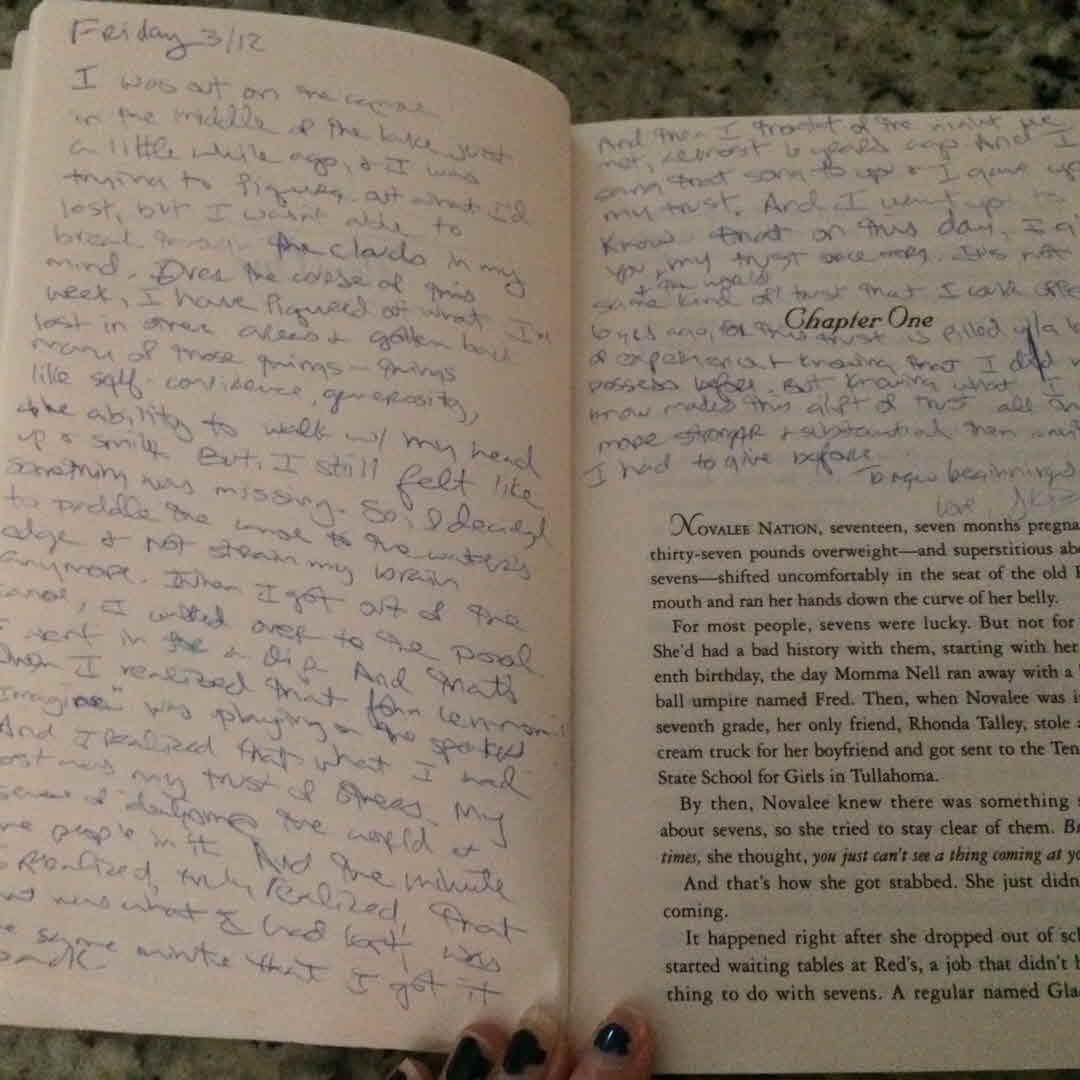 Friday 3/12
I was out on the canoe
in the middle of the lake just
a little while ago, & I was
trying to figure out what I'd
lost, but I wasn't able to
break through the clouds in my
mind. Over the course of this
week, I have figured out what I'd
lost in other areas & gotten back
many of those things - things
like self-confidence, generosity,
the ability to walk w/ my head
up & smile. But, I still felt like
something was missing. So, I decided
to paddle the canoe to the water's
edge & not strain my brain
anymore. When I got out of the
canoe, I walked over to the pool
I went in for a dip. And that's
when I realized that John Lennon's
"Imagine" was playing on the speakers
And I realized that what I had
lost was my trust of others. My
sense of the world &
the people in it. And the minute
I realized, truly realized, that
that was what I had lost, was
the same minute that I got it
back
And then I thought of the night we
met, almost 6 years ago And I
sang that song to you & I gave you
my trust. And I want you to
know that on this day, I give
you, & the world, my trust once more. It's not the
same kind of trust that I could offer
6 yrs ago, for this trust is filled w/ a
of experience & knowing that I did not
possess before. But knowing what I
know makes this gift of trust all the
more stronger & substantial then
I had to give before.
To new beginnings
Love,
Chapter One
NOVALEE NATION, seventeen, seven months pregna
thirty-seven pounds overweight—and superstitious abo
sevens—shifted uncomfortably in the seat of the old
mouth and ran her hands down the curve of her belly.
For most people, sevens were lucky. But not for
She'd had a bad history with them, starting with her
enth birthday, the day Momma Nell ran away with a
ball umpire named Fred. Then, when Novalee was i
seventh grade, her only friend, Rhonda Talley, stole
cream truck for her boyfriend and got sent to the Ten
State School for Girls in Tullahoma.
By then, Novalee knew there was something
about sevens, so she tried to stay clear of them.
times, she thought, you just can't see a thing coming at yo
And that's how she got stabbed. She just didn
coming.
It happened right after she dropped out of sch
started waiting tables at Red's, a job that didn't
thing to do with sevens. A regular named Gla